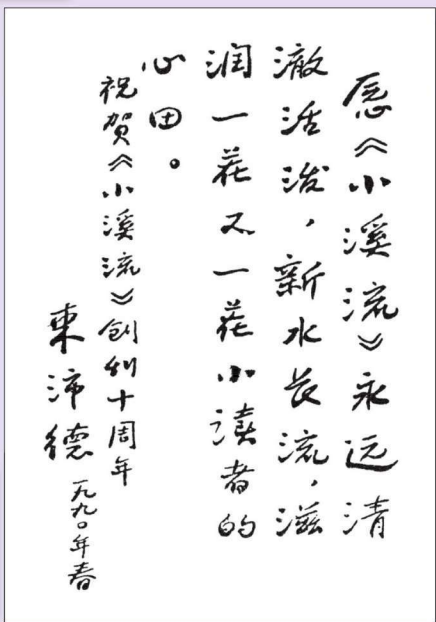 愿《小溪流》永远清
澈活泼，新水长流，滋
润一茬又一茬小读者的
心田。
祝贺《小溪流》创刊十周年
束沛德
一九九〇年春